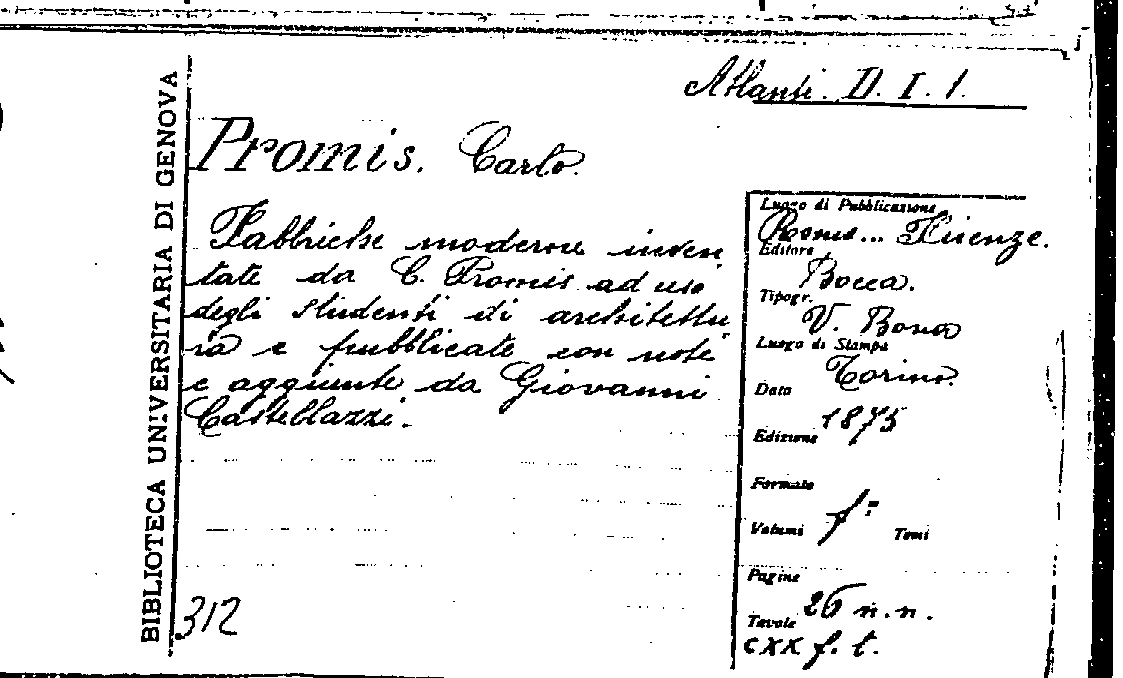 Atlanti. D. I. 1.
BIBLIOTECA UNIVERSITARIA DI GENOVA
Promis. Carlo.
Fabbriche moderne inven
tate da C. Promis ad uso
degli studenti di architettu
ra e pubblicate con note
e aggiunte da Giovanni
Castellazzi.
312
Luogo di Pubblicazione
Roma... Firenze.
Editore
Bocca.
Tipogr.
V. Bona
Luogo di Stampa
Torino.
Data
1875
Edizione
Formato
f.º
Volumi Tomi
Pagine
26 n. n.
Tavole
CXX f. t.